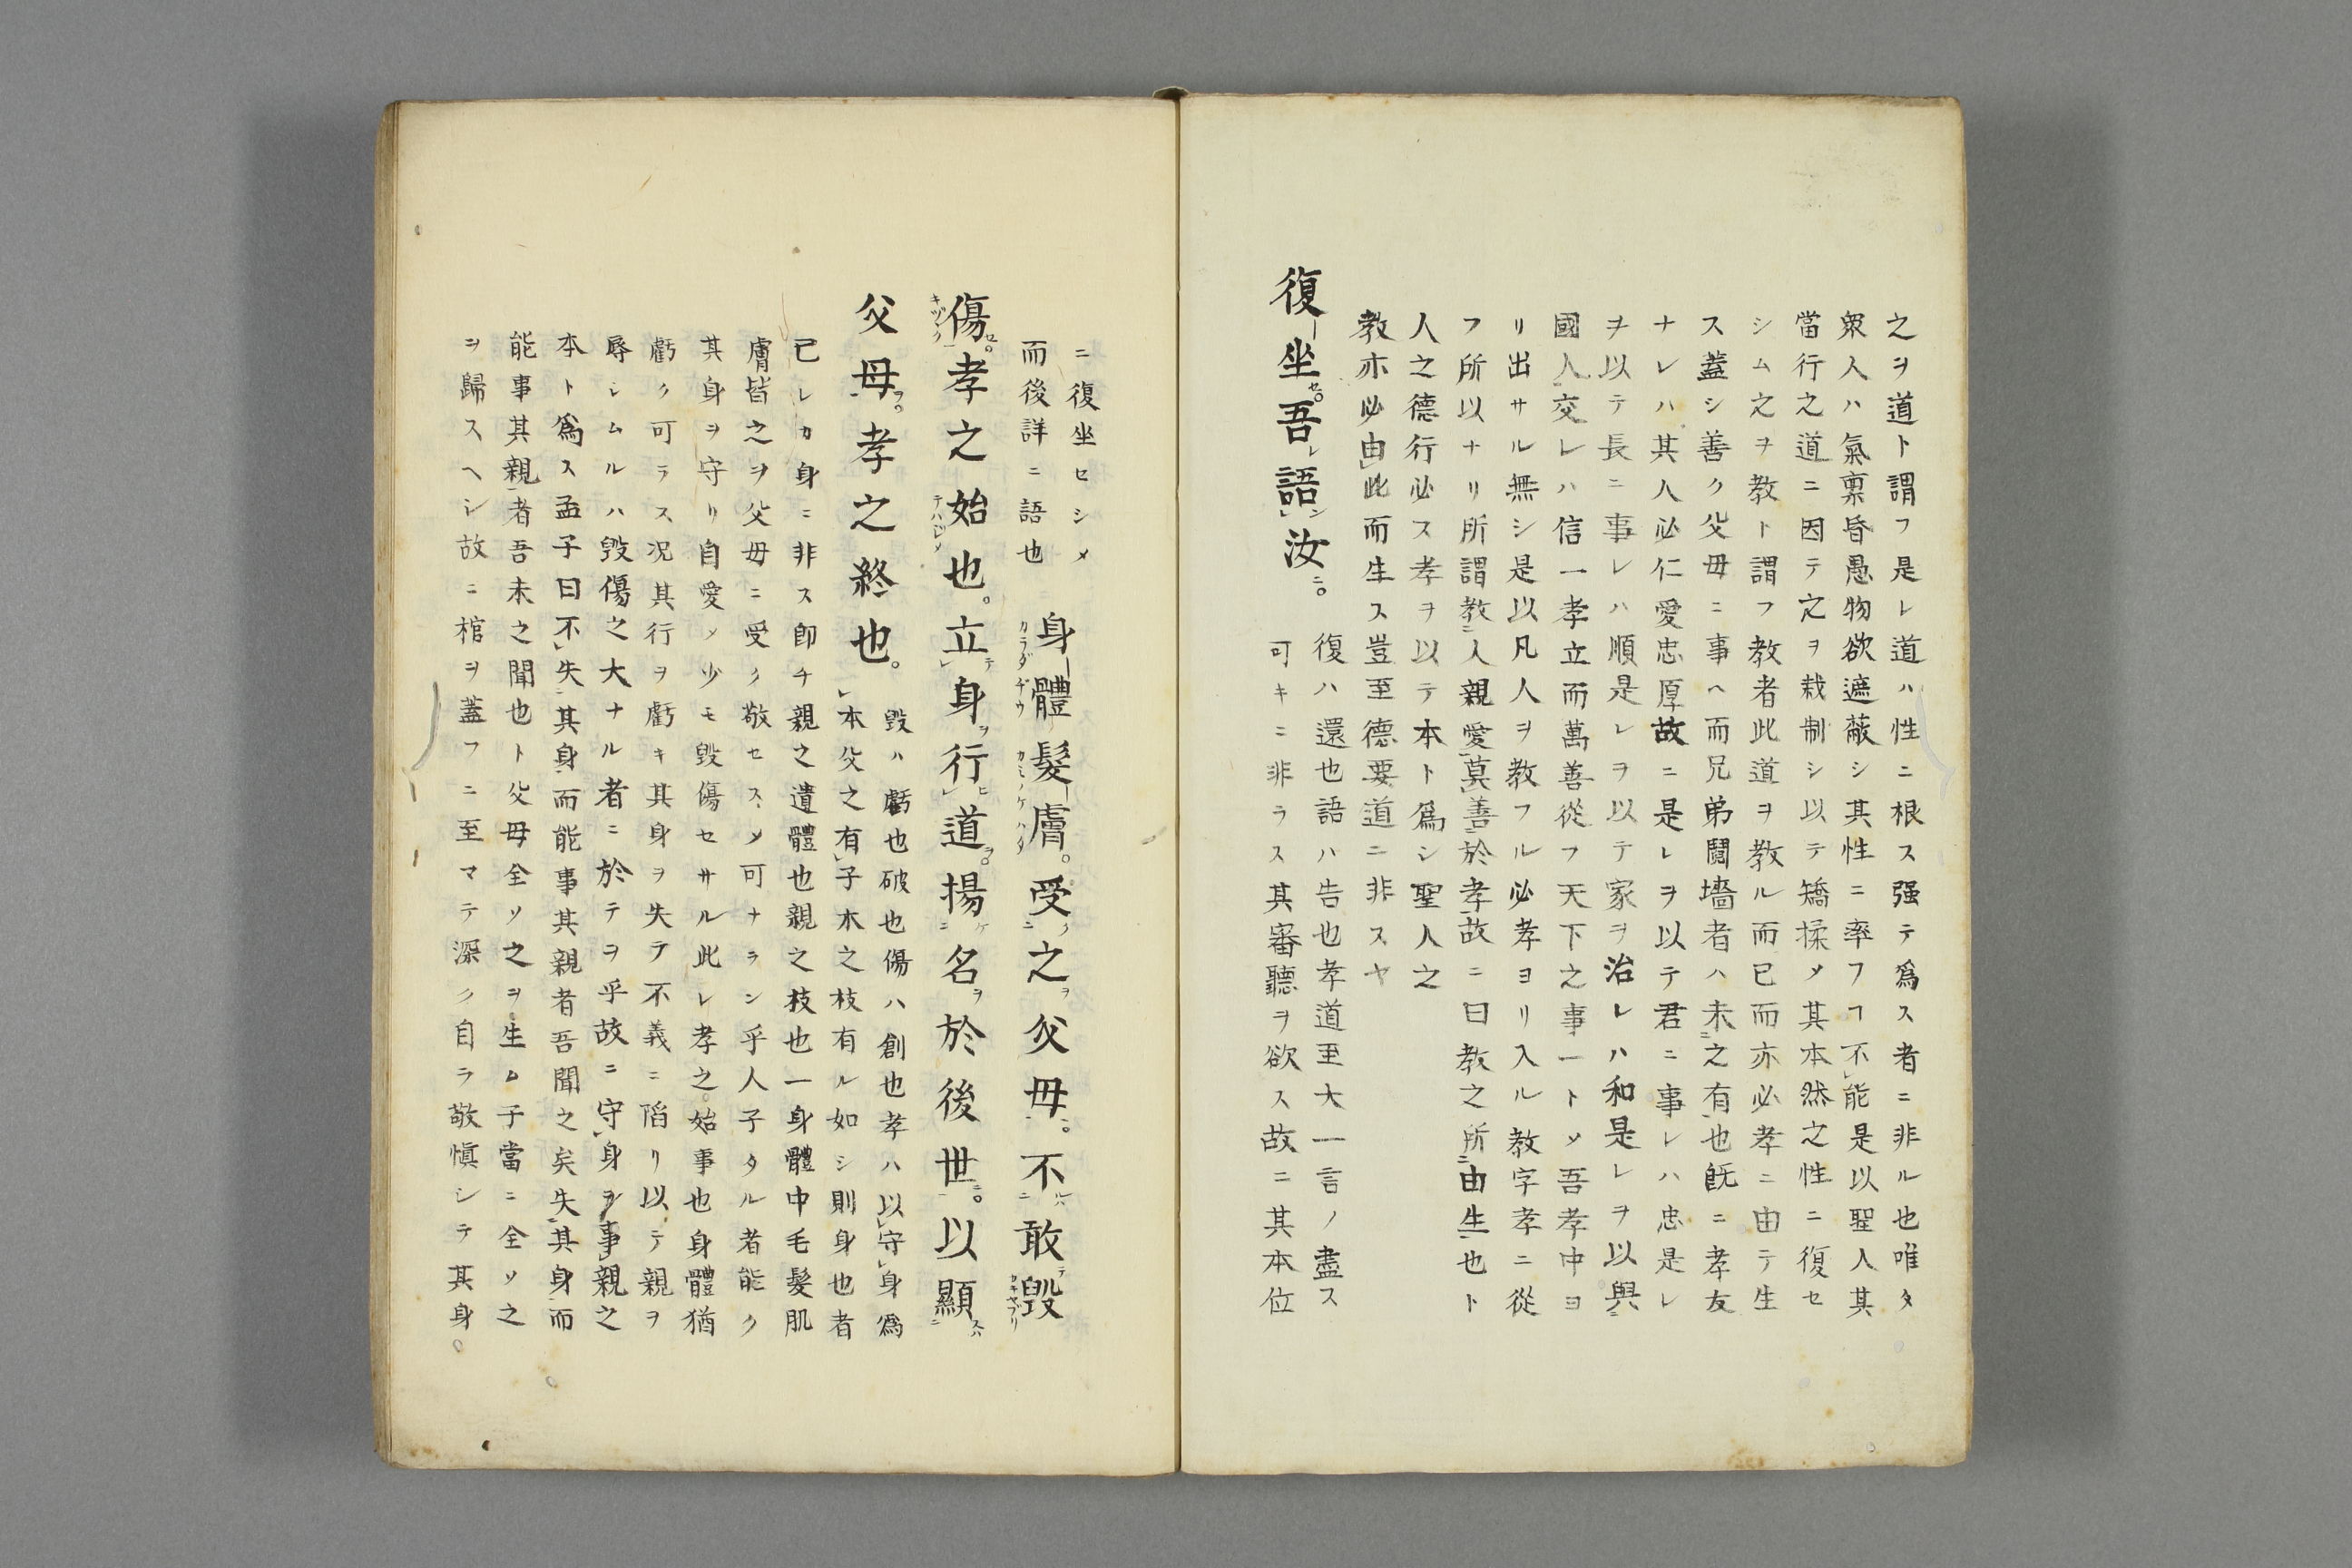 之ヲ道ト謂フ是レ道ハ性ニ根ス强テ爲ス者ニ非ル也唯タ
衆人ハ氣稟昏愚物欲遮蔽シ其性ニ率フヿ不能是以聖人其
當行之道ニ因テ之ヲ栽制シ以テ矯揉メ其本然之性ニ復セ
シム之ヲ教ト謂フ教者此道ヲ教ル而已而亦必孝ニ由テ生
ス蓋シ善ク父母ニ事ヘ而兄弟鬩墻者ハ未之有也旣ニ孝友
ナレハ其人必仁愛忠厚故ニ是レヲ以テ君ニ事レハ忠是レ
ヲ以テ長ニ事レハ順是レヲ以テ家ヲ治レハ和是レヲ以與
國人交レハ信一孝立而萬善從フ天下之事一トメ吾孝中ヨ
リ出サル無シ是以凡人ヲ教フル必孝ヨリ入ル教字孝ニ從
フ所以ナリ所謂教人親愛莫善於孝故ニ曰教之所由生也ト
人之德行必ス孝ヲ以テ本ト爲シ聖人之
教亦必由此而生ス豈至德要道ニ非スヤ
復坐セ吾語ン汝ニ。
復ハ還也語ハ告也孝道至大一言ノ盡ス
可キニ非ラス其審聽ヲ欲ス故ニ其本位
ニ復坐セシメ
而後詳ニ語也
身體カラダヂウ髮膚カミノケハダ。受ク之ヲ父母ニ。不ル敢テ毀カキヤブリ
傷キヅツケセ。孝之始テハジメ也。立テ身ヲ行ヒ道ヲ。揚ケ名ヲ於後世ニ。以顯スハ
父母ヲ。孝之終也。
毀ハ虧也破也傷ハ創也孝ハ以守身爲
本父之有子木之枝有ル如シ則身也者
已レカ身ニ非ス卽チ親之遺體也親之枝也一身體中毛髮肌
膚皆之ヲ父母ニ受ク敬セスメ可ナラン乎人子タル者能ク
其身ヲ守リ自愛メ少モ毀傷セサル此レ孝之始事也身體猶
虧ク可ラス况其行ヲ虧キ其身ヲ失テ不義ニ陷リ以テ親ヲ
辱シムルハ毀傷之大ナル者ニ於テヲ乎故ニ守身ヲ事親之
本ト爲ス孟子曰不失其身而能事其親者吾聞之矣失其身而
能事其親者吾未之聞也ト父母全ソ之ヲ生ム子當ニ全ソ之
ヲ歸スヘシ故ニ棺ヲ蓋フニ至マテ深ク自ラ敬愼シテ其身。